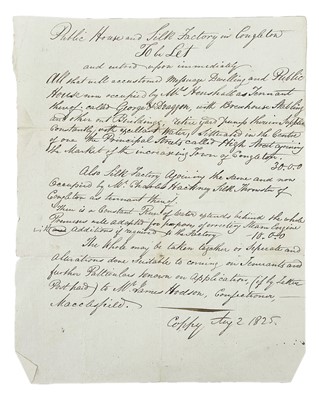 Public House and Silk Factory in Congleton
To be Let
and entred upon immediately
All that well accustomed Messuage Dwelling and Public
House now occupied by Mrs Henshall as Tennant
thereof called George & Dragon, with Brewhouse Stabling
and other out Buildings, entire yard pump therein Supplied
Constantly with expellent Water, Sittuated in the Centre
of one the Principal Streets called High Street ajoining
the Market of the increasing Town of Congleton.
30.0.0
Also Silk Factory Ajoining the Same and now
Occupied by Mr Charles Hackney Silk Throwster of
Congleton as tennant thereof.
There is a Constant Run of water extends behind the whole
Premises well adapted for purposes of errecting Steam Engine
with Additions if required to the Factory 18.0.0
The Whole may be taken together or Seperate and
Alterations done Suitable to coming on Tennants and
further Particulars known on Application (if by letter
Post paid) to Mr James Hodson, Confectioner,
Macclesfield.
Coppy Aug 2 1825.